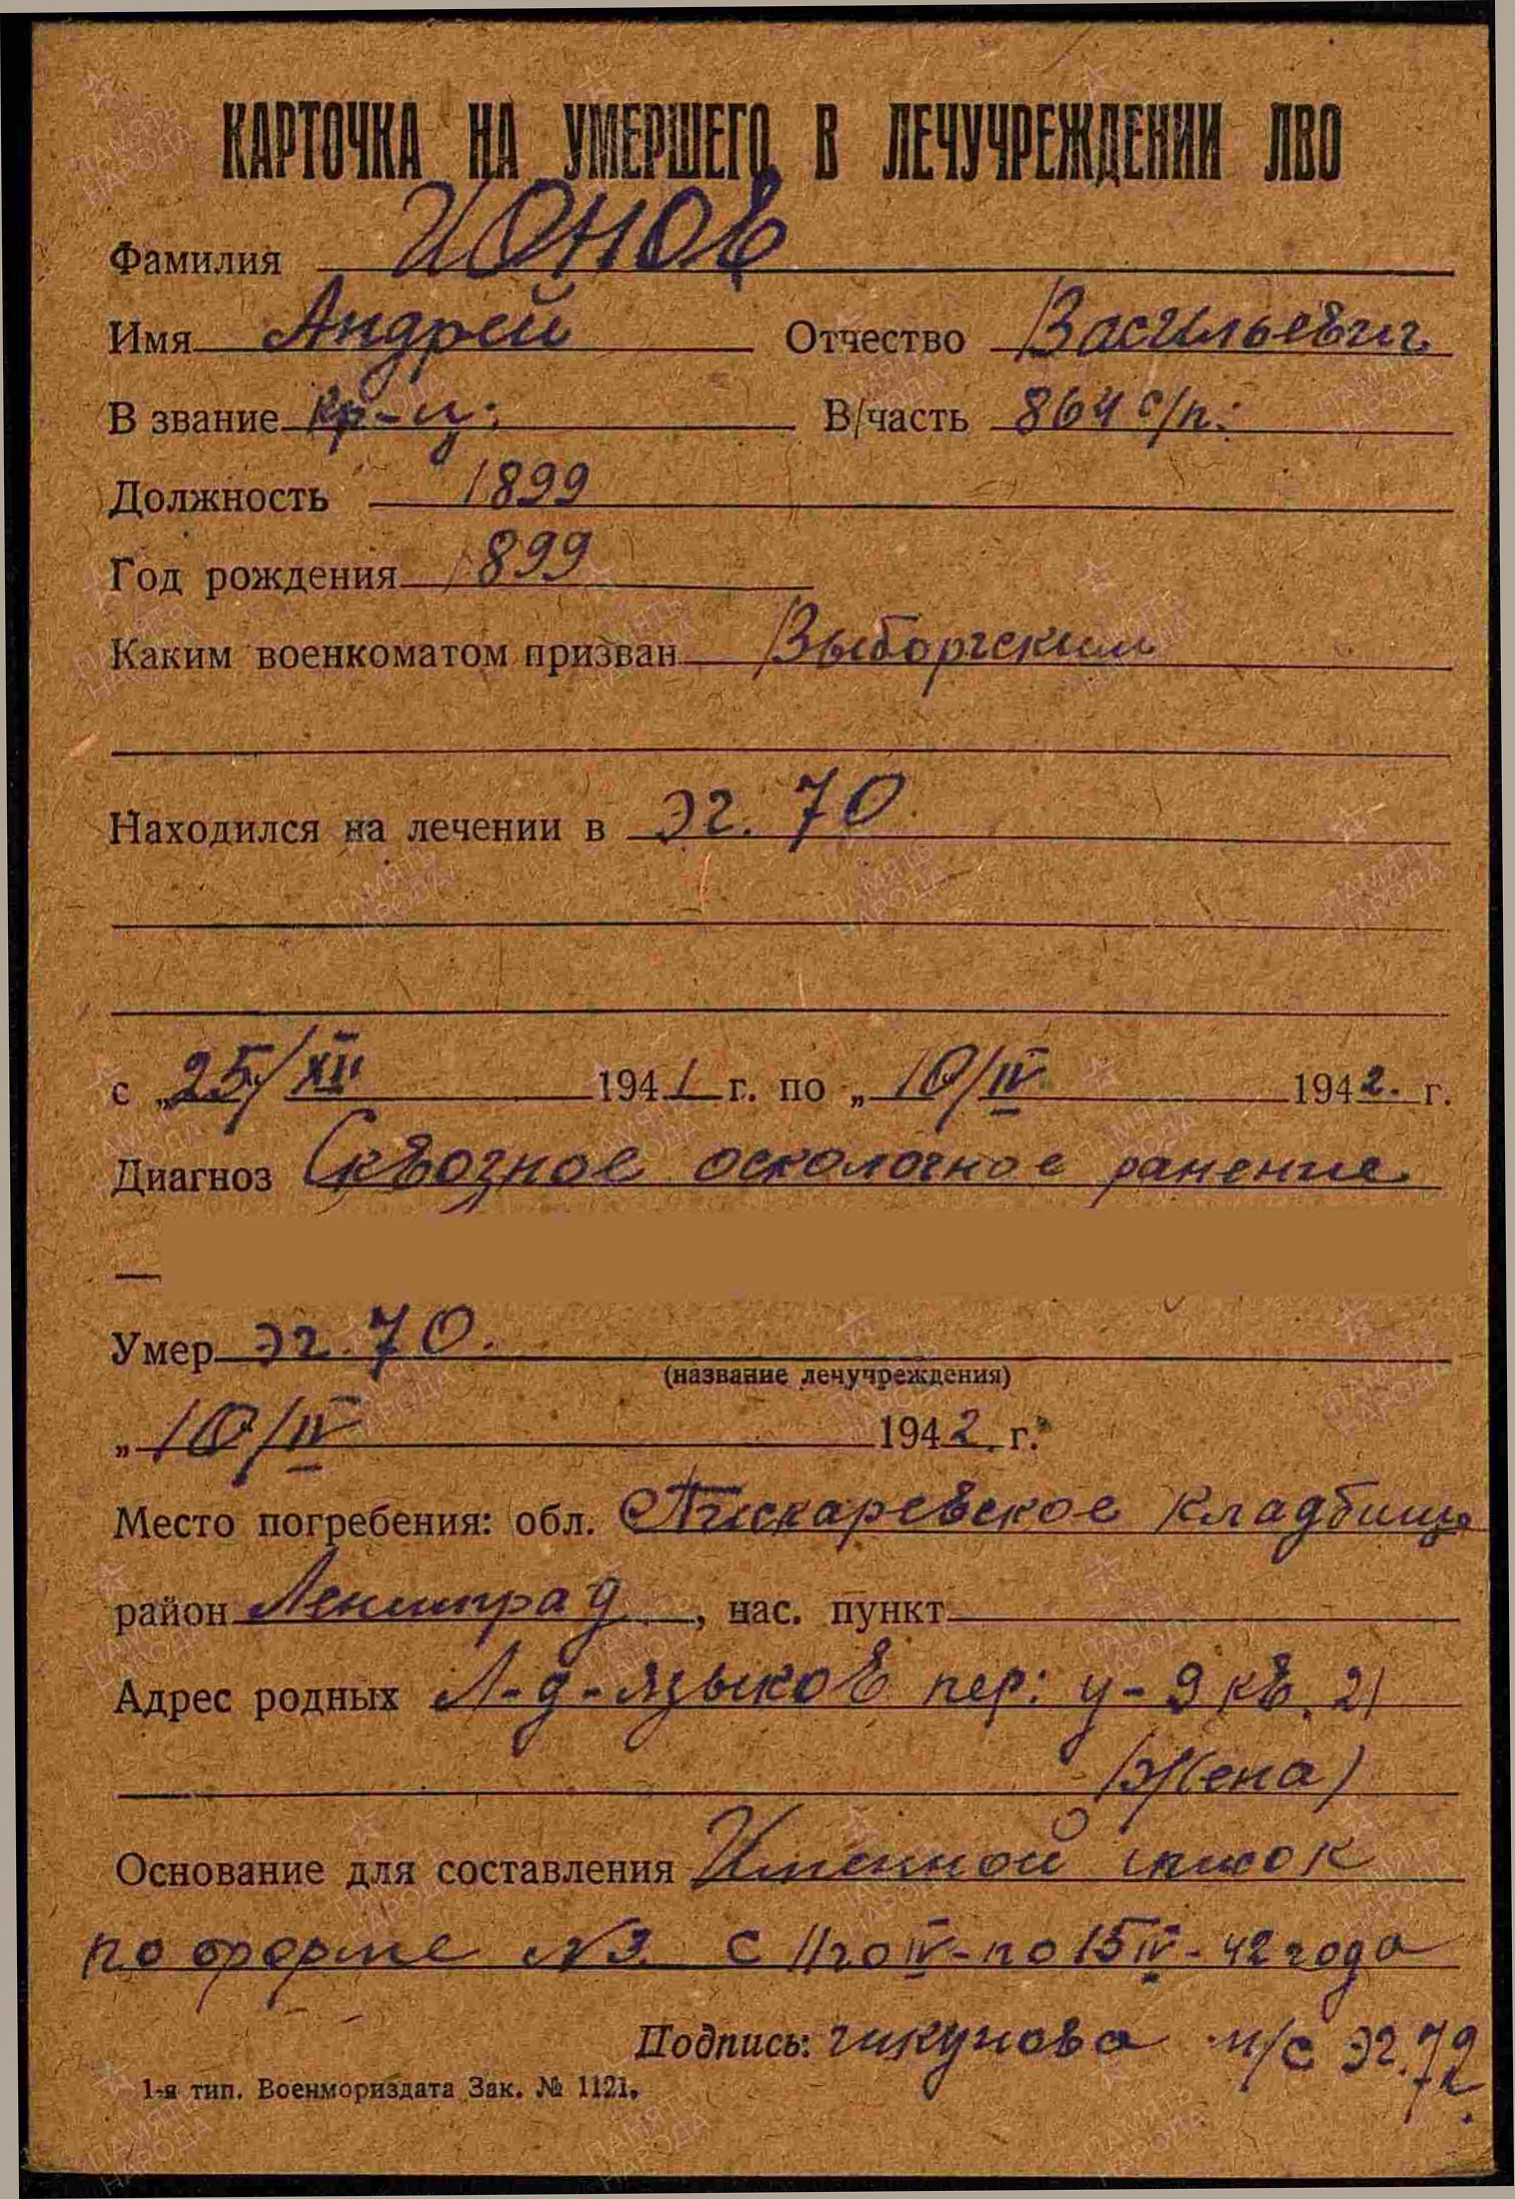 КАРТОЧКА НА УМЕРШЕГО В ЛЕЧУЧРЕЖДЕНИИ ЛВО
Фамилия Ионов
Имя Андрей Отчество Васильевич
В звание кр-ц: В/часть 864 с/п:
Должность 1899
Год рождения 1899
Каким военкоматом призван Выборгским
Находился на лечении в эг. 70
с „25/XII 1941 г. по „10/IV 1942. г.
Диагноз Сквозное осколочное ранение
Умер эг. 70.
(название лечучреждения)
„10/IV 1942. г.
Место погребения: обл. Пискаревское кладбище
район Ленинград, нас. пункт
Адрес родных Л-д-языков пер: у-9 кв. 21
(Жена)
Основание для составления Именной список
по форме №3. с 11го IV-по 15 IV-42 года
Подпись: чикунова м/с эг. 72.
1-я тип. Военмориздата Зак. № 1121.